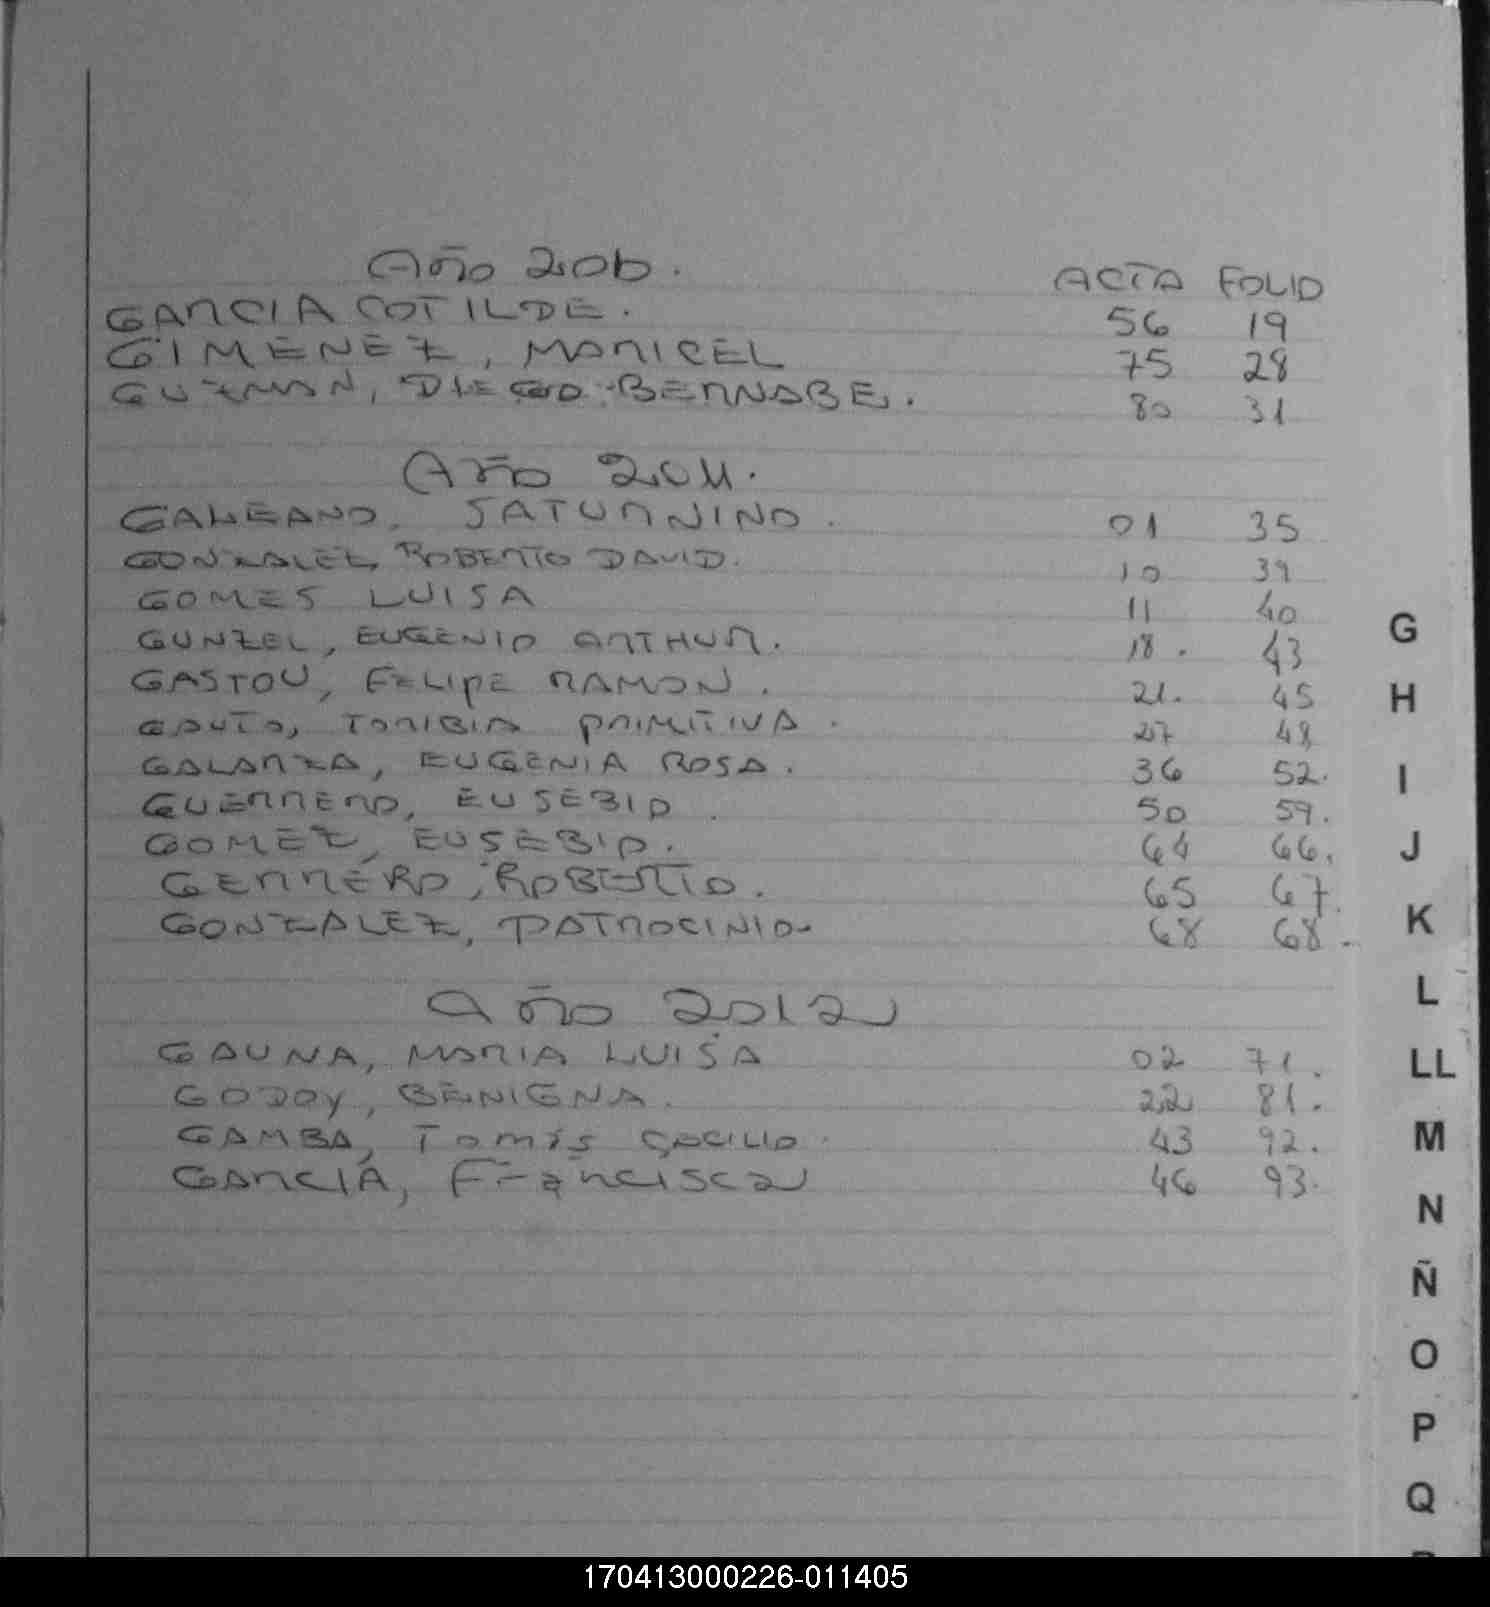 Año 2010. ACTA FOLIO
GARCIA COTILDE. 56 19
GIMENEZ, MARICEL 75 28
GUZMAN, DIEGO BERNABE. 80 31
AÑO 2011.
GALEANO, SATURNINO. 01 35
GONZALEZ, ROBERTO DAVID. 10 39
GOMES LUISA 11 40
GUNZEL, EUGENIO ARTHUR. 18. 43
GASTOU, FELIPE RAMON. 21. 45
GAUTO, TORIBIA PRIMITIVA. 27 48
GALARZA, EUGENIA ROSA. 36 52.
GUERRERO, EUSEBIO. 50 59.
GOMEZ, EUSEBIO. 64 66.
GERRERO, ROBERTO. 65 67.
GONZALEZ, PATROCINIO. 68 68.
Año 2012
GAUNA, MARIA LUISA 02 71.
GODOY, BENIGNA. 22 81.
GAMBA, Tomás 43 92.
GARCIA, Francisca 46 93.
G
H
I
J
K
L
LL
M
N
Ñ
O
P
Q
170413000226-011405